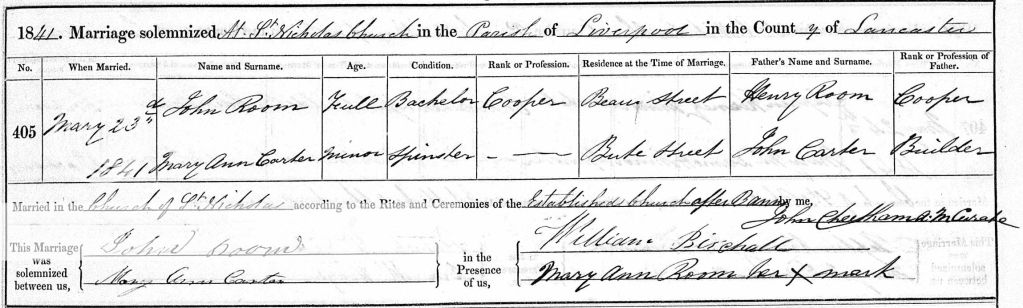 1841. Marriage solemnized At St Nicholas Church in the Parish of Liverpool in the County of Lancaster
No. When Married. Name and Surname. Age. Condition. Rank or Profession. Residence at the Time of Marriage. Father's Name and Surname. Rank or Profession of Father.
405 Mary 23d 1841 John Room Full Bachelor Cooper Beau Street Henry Room Cooper
Mary Ann Carter Minor Spinster - — Bute Street John Carter Builder
Married in the Church of St Nicholas according to the Rites and Ceremonies of the Established Church after Banns by me,
John Cheetham A.M Curate
This Marriage was solemnized between us, John Room
Mary Ann Carter
in the Presence of us, William Birchall
Mary Ann Room her X mark